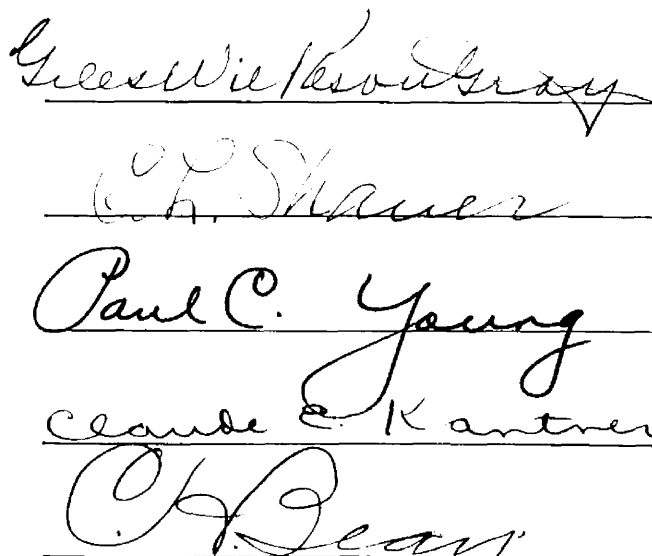 Giles Wilkeson Gray
C. L. Shaver
Paul C. Young
Claude E. Kantner
C. H. Bean